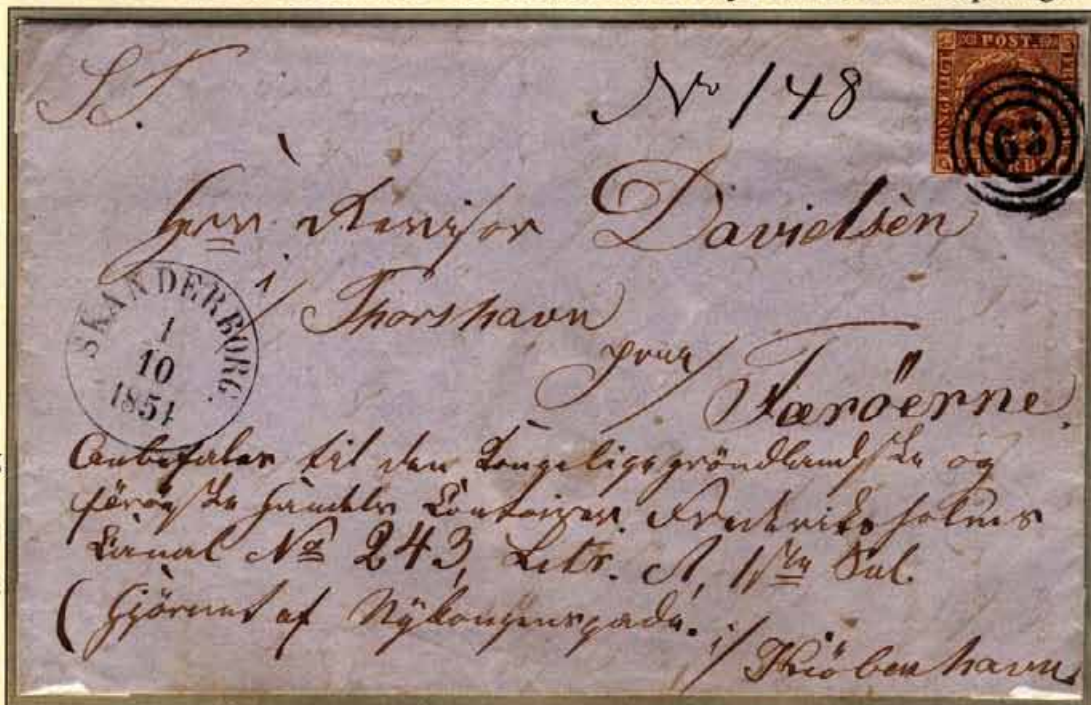 S.T.
No 148
KONGELIGT POST. FRM.
63
Herr Revisor Davidsen
i/ Thorshavn
paa/ Færöerne.
SKANDERBORG.
1
10
1851
Anbefales til den Kongelige grönlandske og
færöiske Handels Contoirer. Frederiksholms
Canal No 243, Litr. A, 1ste Sal.
(Hjörnet af Nykongensgade.
i/ Kiöbenhavn.